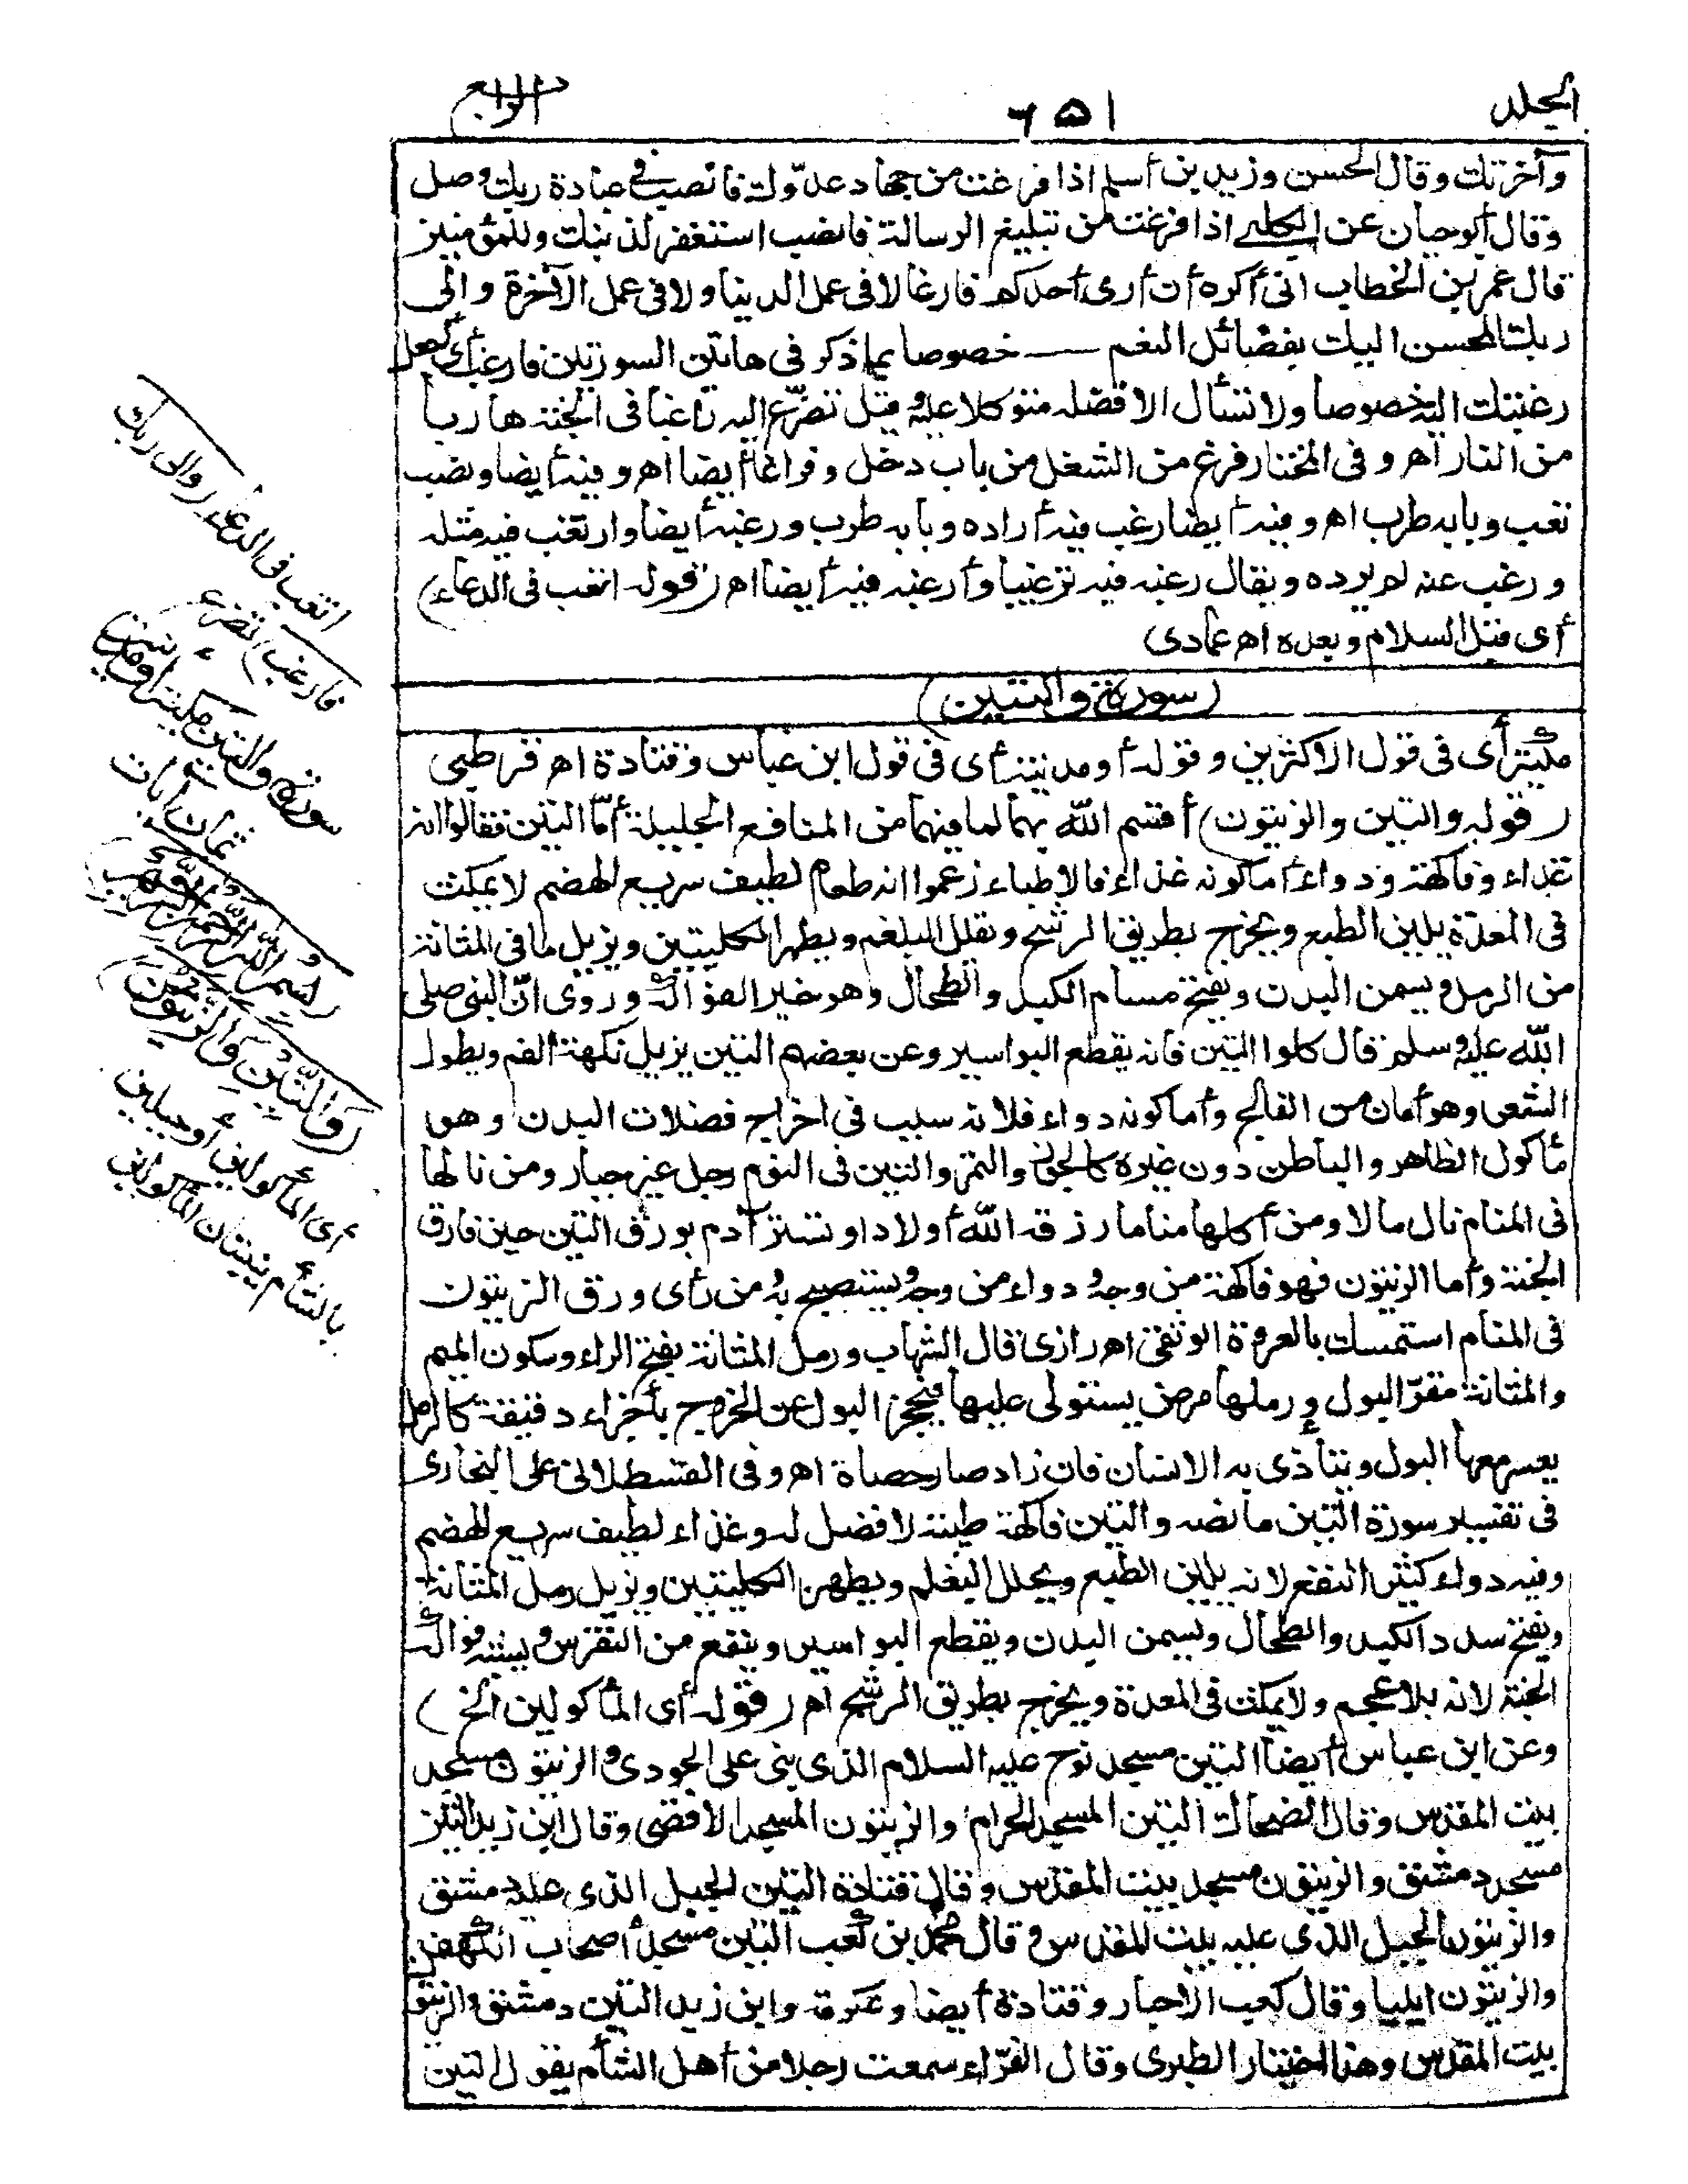 الجلد
٦٥١
الرابع
وآخرتك وقال الحسن وزيد بن أسلم اذا فرغت من جهاد عدّوك فانصب فى عبادة ربك وصل
وقال أبو حيان عن الكلبى اذا فرغت من تبليغ الرسالة فانصب استغفر لذنبك وللمؤمنين
قال عمر بن الخطاب انى أكره أن أرى أحدكم فارغا لا فى عمل الدنيا ولا فى عمل الآخرة والى
ربك المحسن اليك بفضائل النعم خصوصا بما ذكر فى هاتين السورتين فارغب أى اجعل
رغبتك اليه خصوصا ولا تسأل الا فضله متوكلا عليه وقيل تضرّع اليه راغبا فى الجنة هاربا
من النار اهـ وفى المختار فرغ من الشغل من باب دخل وفراغا أيضا اهـ وفيه أيضا ونصب
تعب وبابه طرب اهـ وفيه أيضا رغب فيه أراده وبابه طرب ورغبة أيضا وارتغب فيه مثله
ورغب عنه لم يرده ويقال رغبه فيه ترغيبا وأرغبه فيه أيضا اهـ (قوله اتعب فى الدعاء)
أى قبل السلام وبعده اهـ عمادى
(سورة والتين)
مكية أى فى قول الاكثرين وقوله أو مدنية أى فى قول ابن عباس وقتادة اهـ قرطبى
(قوله والتين والزيتون) أقسم الله بهما لما فيهما من المنافع الجليلة أمّا التين فقالوا انه
غذاء وفاكهة ودواء أما كونه غذاء فالاطباء زعموا انه طعام لطيف سريع الهضم لا يمكث
فى المعدة يلين الطبع ويخرج بطريق الرشح ويقلل البلغم ويطهر الكليتين ويزيل ما فى المثانة
من الرمل ويسمن البدن ويفتح مسام الكبد والطحال وهو خير الفواكه وروى انّ النبى صلى
الله عليه وسلم قال كلوا التين فانه يقطع البواسير وعن بعضهم التين يزيل نكهة الفم ويطول
الشعر وهو أمان من الفالج وأما كونه دواء فلانه سبب فى اخراج فضلات البدن وهو
مأكول الظاهر والباطن دون غيره كالجوز والتمر والتين فى النوم رجل غير جبار ومن نالها
فى المنام نال مالا ومن أكلها مناما رزقه الله أولادا وتستر آدم بورق التين حين فارق
الجنة وأما الزيتون فهو فاكهة من وجه ودواء من وجه ويستصبح به ومن رأى ورق الزيتون
فى المنام استمسك بالعروة الوثقى اهـ رازى قال الشهاب ورمل المثانة بفتح الراء وسكون الميم
والمثانة مقرّ البول ورملها مرض يستولى عليها فيحجز البول عن الخروج بأجزاء دقيقة كالرمل
يعسر معها البول ويتأذى به الانسان فان زاد صار حصاة اهـ وفى القسطلانى على البخارى
فى تفسير سورة التين ما نصه والتين فاكهة طيبة لا فضل له وغذاء لطيف سريع الهضم
وفيه دواء كثير النفع لانه يلين الطبع ويحلل البغلم ويطهر الكليتين ويزيل رمل المثانة
ويفتح سدد الكبد والطحال ويسمن البدن ويقطع البواسير وينفع من النقرس ويشبه فواكه
الجنة لانه بلا عجم ولا يمكث فى المعدة ويخرج بطريق الرشح اهـ (قوله أى المأكولين الخ)
وعن ابن عباس أيضا التين مسجد نوح عليه السلام الذى بنى على الجودى والزيتون مسجد
بيت المقدس وقال الضحاك التين المسجد الحرام والزيتون المسجد الاقصى وقال ابن زيد التين
مسجد دمشق والزيتون مسجد بيت المقدس وقال قتادة التين الجبل الذى عليه دمشق
والزيتون الجبل الذى عليه بيت المقدس وقال محمد بن كعب التين مسجد أصحاب الكهف
والزيتون ايليا وقال كعب الاحبار وقتادة أيضا وعكرمة وابن زيد التين دمشق والزيتون
بيت المقدس وهذا اختيار الطبرى وقال الفرّاء سمعت رجلا من أهل الشأم يقول التين
اتعب فى الدعاء (والى ربك
فارغب) تضرع
سورة والتين مكية أو مدنية
ثمان آيات
بِسْمِ اللهِ الرَّحْمٰنِ الرَّحِيمِ
(وَالتِّيْنِ وَالزَّيْتُوْنِ)
أى المأكولين أو جبلين
بالشأم ينبتان المأكولين